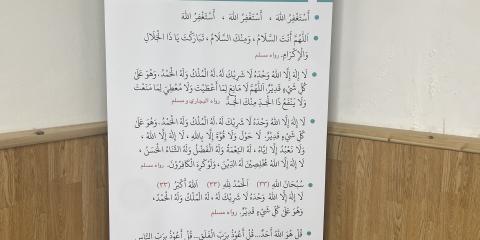 أَسْتَغْفِرُ اللهَ ، أَسْتَغْفِرُ اللهَ ، أَسْتَغْفِرُ اللهَ
اَللّٰهُمَّ أَنْتَ السَّلَامُ ، وَمِنْكَ السَّلَامُ ، تَبَارَكْتَ يَا ذَا الْجَلَالِ
وَالْإِكْرَامِ. رواه مسلم
لَا إِلٰهَ إِلَّا اللهُ وَحْدَهُ لَا شَرِيْكَ لَهُ، لَهُ الْمُلْكُ وَلَهُ الْحَمْدُ، وَهُوَ عَلَىٰ
كُلِّ شَيْءٍ قَدِيْرٌ، اَللّٰهُمَّ لَا مَانِعَ لِمَا أَعْطَيْتَ وَلَا مُعْطِيَ لِمَا مَنَعْتَ
وَلَا يَنْفَعُ ذَا الْجَدِّ مِنْكَ الْجَدُّ. رواه البخاري و مسلم
لَا إِلٰهَ إِلَّا اللهُ وَحْدَهُ لَا شَرِيْكَ لَهُ، لَهُ الْمُلْكُ وَلَهُ الْحَمْدُ، وَهُوَ عَلَىٰ
كُلِّ شَيْءٍ قَدِيْرٌ. لَا حَوْلَ وَلَا قُوَّةَ إِلَّا بِاللهِ ، لَا إِلٰهَ إِلَّا اللهُ ،
وَلَا نَعْبُدُ إِلَّا إِيَّاهُ ، لَهُ النِّعْمَةُ وَلَهُ الْفَضْلُ وَلَهُ الثَّنَاءُ الْحَسَنُ ،
لَا إِلٰهَ إِلَّا اللهُ مُخْلِصِيْنَ لَهُ الدِّيْنَ ، وَلَوْ كَرِهَ الْكَافِرُوْنَ. رواه مسلم
سُبْحَانَ اللهِ (٣٣) اَلْحَمْدُ لِلّٰهِ (٣٣) اَللهُ أَكْبَرُ (٣٣)
لَا إِلٰهَ إِلَّا اللهُ وَحْدَهُ لَا شَرِيْكَ لَهُ ، لَهُ الْمُلْكُ وَلَهُ الْحَمْدُ،
وَهُوَ عَلَىٰ كُلِّ شَيْءٍ قَدِيْرٌ. رواه مسلم
قُلْ هُوَ اللهُ أَحَدٌ... قُلْ أَعُوْذُ بِرَبِّ الْفَلَقِ... قُلْ أَعُوْذُ بِرَبِّ النَّاسِ